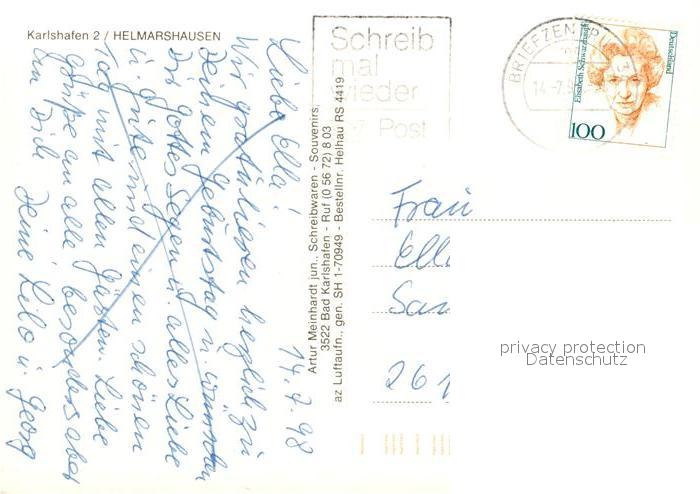 Karlshafen 2 / HELMARSHAUSEN
14.7.98
Liebe Ella!
Wir gratulieren herzlich zu
Deinem Geburtstag u. wünschen
Dir Gottes Segen u. alles Liebe
u. Gute und einen schönen
Tag mit allen Gästen. Liebe
Grüße an alle besonders aber
an Dich Deine Lilo u. Georg
Artur Meinhardt jun., Schreibwaren - Souvenirs,
3522 Bad Karlshafen - Ruf (0 56 72) 8 03
az Luftaufn., gen. SH 1-70949 - Bestellnr. Helhau RS 4419
Schreib
mal
wieder
Post
BRIEFZEN
14.-7.9
Elisabeth Schwarzhaupt
Deutschland
100
Frau
Ell
San
261
privacy protection
Datenschutz